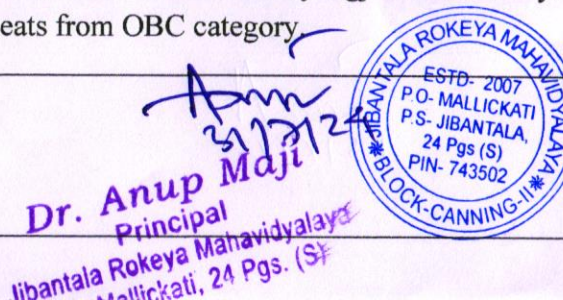 eats from OBC category.
31/7/24
Dr. Anup Maji
Principal
Jibantala Rokeya Mahavidyalaya
Mallickati, 24 Pgs. (S)
JIBANTALA ROKEYA MAHAVIDYALAYA
ESTD- 2007
P.O- MALLICKATI
P.S- JIBANTALA,
24 Pgs (S)
PIN- 743502
*BLOCK-CANNING-II*